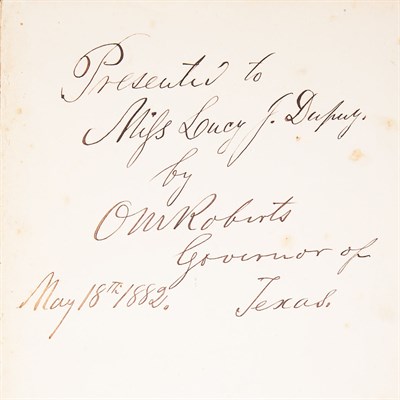 Presented to
Miss Lucy J. Dupuy.
by
O M Roberts
Governor of
May 18th 1882. Texas.